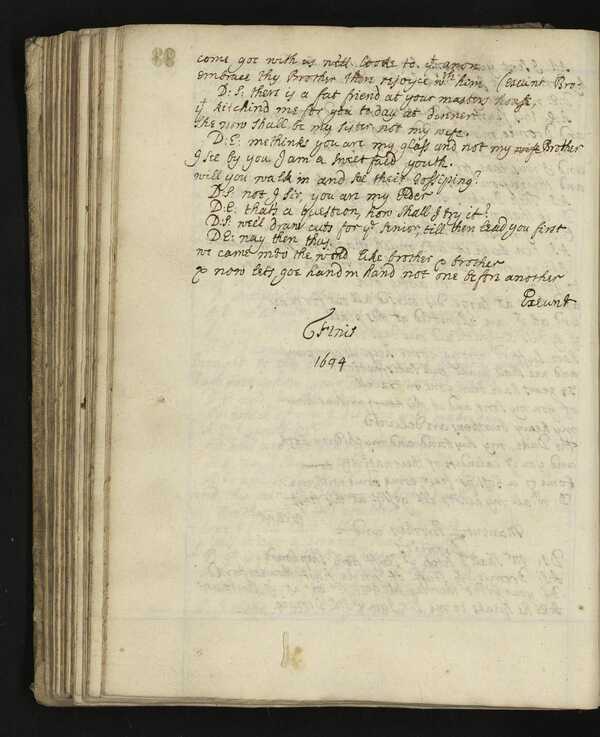 come goe with us wéll looke to yt anon
embrace thy Brother then rejoyce wth him (exeunt Bro-
D: S: there is a fat friend at your masters house
yt kitchind me for you to day at dinner
she now shall be my sister not my wife.
D: E: methinks you are my glass and not my Brother
I see by you I am a sweet facd youth.
will you walk in and see their Gossiping?
D: S: not I Sir, you are my Elder
D: E: thats a question, how shall I try it?
D: S: wéll draw cutts for ye senior, till then lead you first
D: E: nay then thus.
we came into the world like brother & brother
& now lets goe hand in hand not one before another
Exeunt
Finis
1694